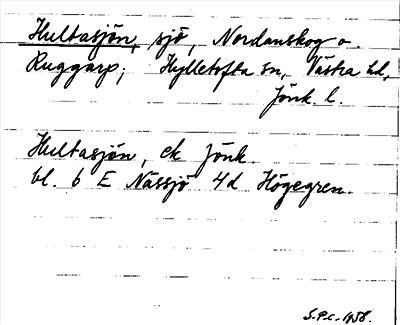 Hultasjön, sjö, Nordanskog o.
Ruggarp, Hylletofta sn, Västra hd,
Jönk. l.
Hultasjön, ek Jönk.
bl. 6 E Nässjö 4d Högegren.
S.P.c. 1958.